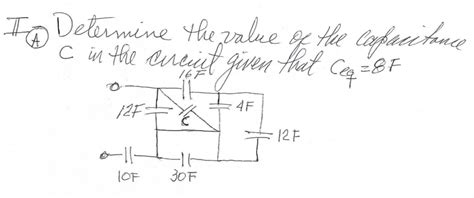 II A Determine the value of the capacitance
C in the circuit given that Ceq = 8F
16F
12F
C
4F
12F
10F
30F